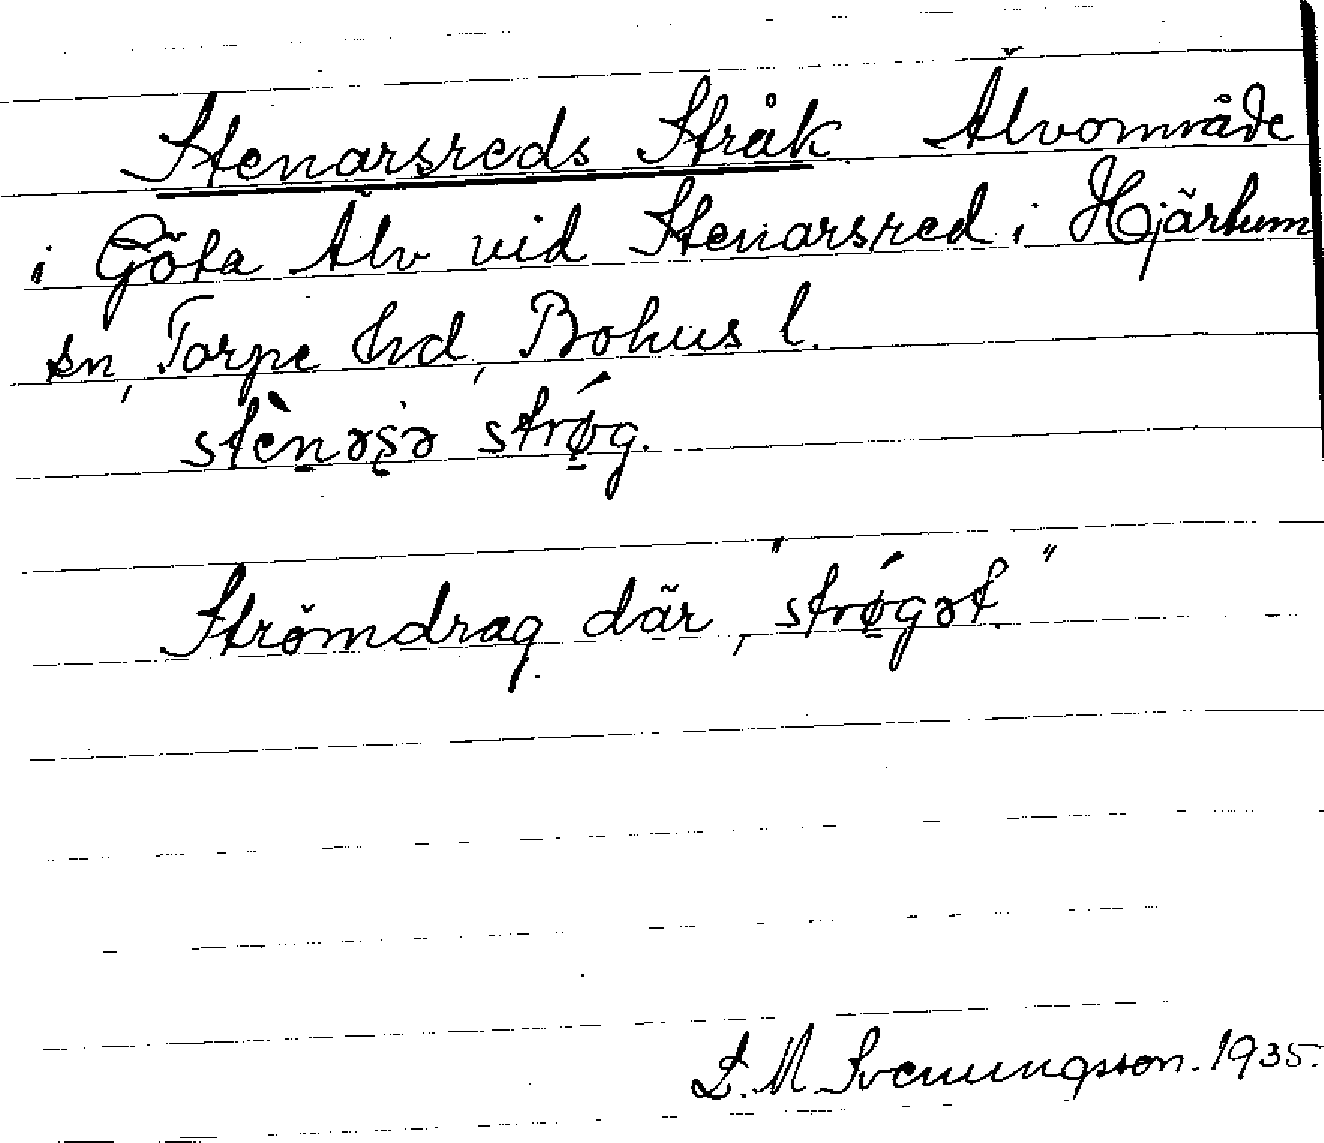 Stenarsreds Stråk. Älvområde
i Göta Älv vid Stenarsred i Hjärtum
sn, Torpe hd, Bohus l.
stènəs̨ə strǿg.
Strömdrag där, "strǿgət."
L. M. Svenungsson. 1935.